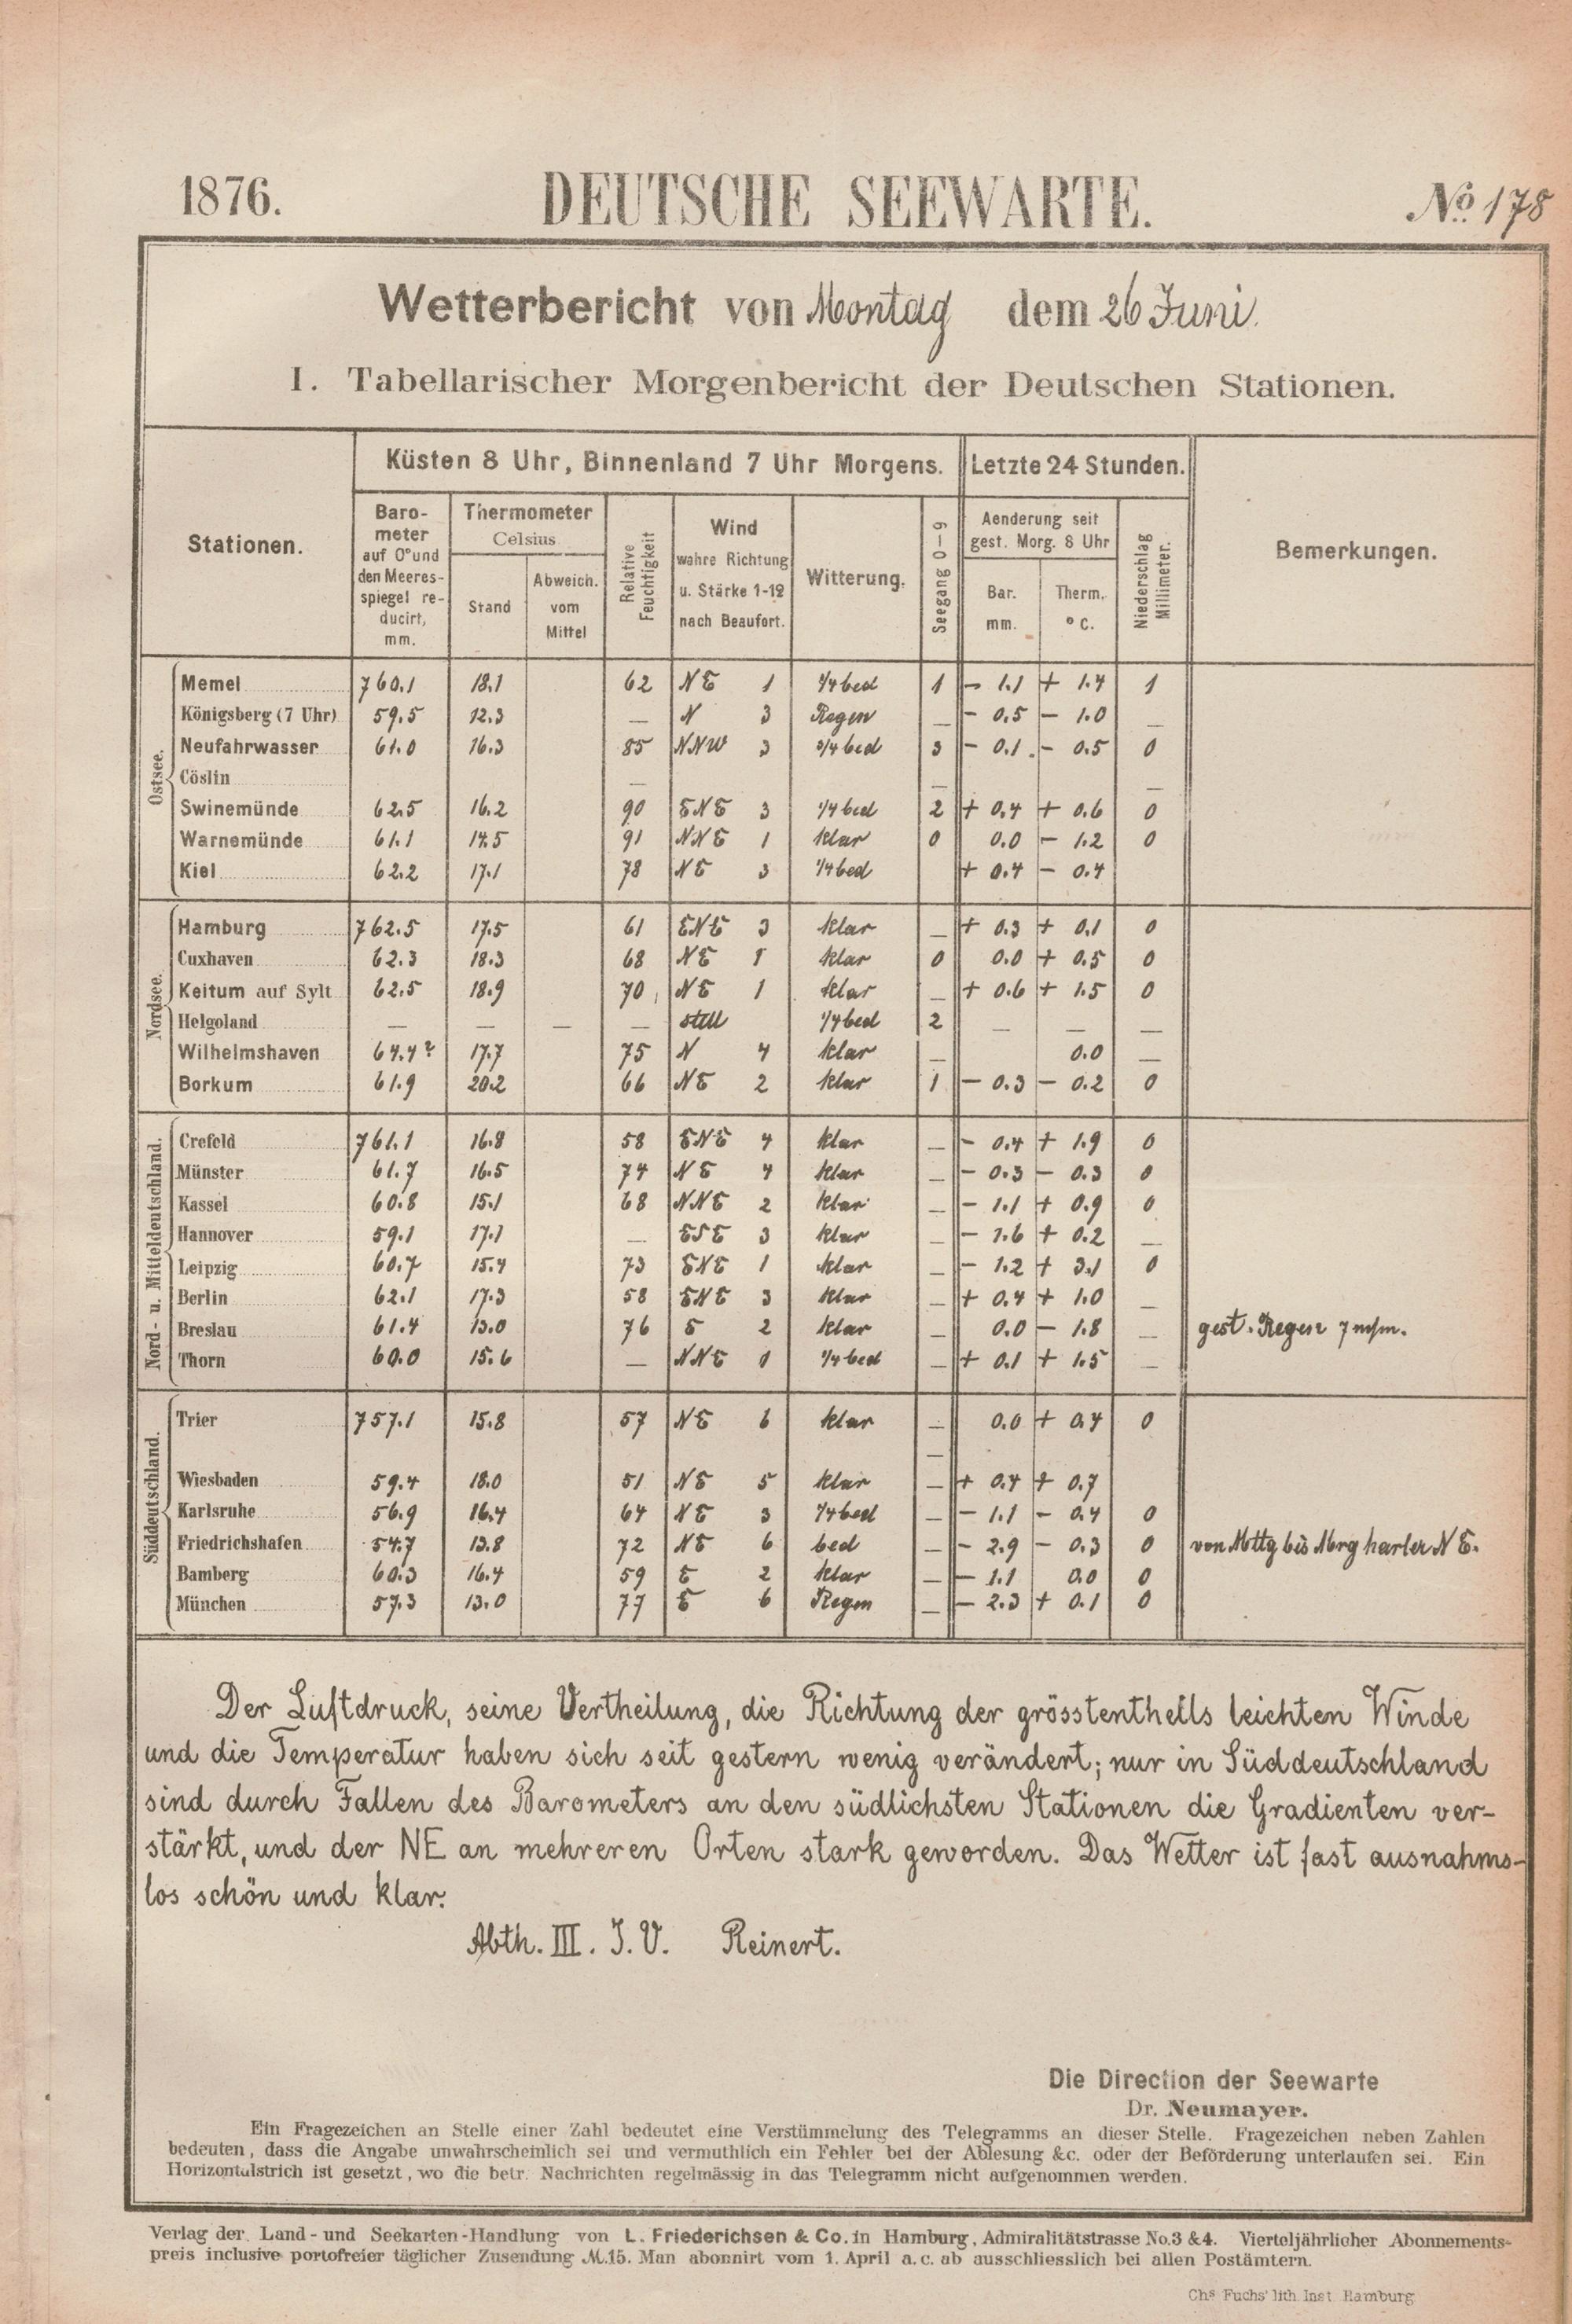 1876. DEUTSCHE SEEWARTE. No. 178
Wetterbericht von Montag dem 26 Juni.
I. Tabellarischer Morgenbericht der Deutschen Stationen.
Stationen.
Küsten 8 Uhr, Binnenland 7 Uhr Morgens.
Letzte 24 Stunden.
Bemerkungen.
Barometer auf 0° und den Meeresspiegel reducirt, mm.
Thermometer Celsius
Stand
Abweich. vom Mittel
Relative Feuchtigkeit
Wind wahre Richtung u. Stärke 1-12 nach Beaufort.
Witterung.
Seegang 0-9
Aenderung seit gest. Morg. 8 Uhr
Bar. mm.
Therm. ° C.
Niederschlag Millimeter.
Ostsee.
Memel 760.1 18.1 62 NE 1 1/4 bed 1 - 1.1 + 1.4 1
Königsberg (7 Uhr) 59.5 12.3 — N 3 Regen — - 0.5 - 1.0 —
Neufahrwasser 61.0 16.3 85 NNW 3 3/4 bed 3 - 0.1 - 0.5 0
Cöslin — — —
Swinemünde 62.5 16.2 90 ENE 3 1/4 bed 2 + 0.4 + 0.6 0
Warnemünde 61.1 14.5 91 NNE 1 klar 0 0.0 - 1.2 0
Kiel 62.2 17.1 78 NE 3 1/4 bed + 0.4 - 0.4
Nordsee.
Hamburg 762.5 17.5 61 ENE 3 klar — + 0.3 + 0.1 0
Cuxhaven 62.3 18.3 68 NE 1 klar 0 0.0 + 0.5 0
Keitum auf Sylt 62.5 18.9 70 NE 1 klar — + 0.6 + 1.5 0
Helgoland — — — — still 1/4 bed 2 — — —
Wilhelmshaven 64.4? 17.7 75 N 4 klar — 0.0 —
Borkum 61.9 20.2 66 NE 2 klar 1 - 0.3 - 0.2 0
Nord- u. Mitteldeutschland.
Crefeld 761.1 16.8 58 ENE 4 klar — - 0.4 + 1.9 0
Münster 61.7 16.5 74 NE 4 klar — - 0.3 - 0.3 0
Kassel 60.8 15.1 68 NNE 2 klar — - 1.1 + 0.9 0
Hannover 59.1 17.1 — ESE 3 klar — - 1.6 + 0.2 —
Leipzig 60.7 15.4 73 ENE 1 klar — - 1.2 + 3.1 0
Berlin 62.1 17.3 58 ENE 3 klar — + 0.4 + 1.0 —
Breslau 61.4 13.0 76 E 2 klar — 0.0 - 1.8 — gest. Regen 7 m/m.
Thorn 60.0 15.6 — NNE 1/4 bed — + 0.1 + 1.5 —
Süddeutschland.
Trier 757.1 15.8 57 NE 6 klar — 0.0 + 0.4 0
—
Wiesbaden 59.4 18.0 51 NE 5 klar — + 0.4 + 0.7
Karlsruhe 56.9 16.4 64 NE 3 1/4 bed — - 1.1 - 0.4 0
Friedrichshafen 54.7 13.8 72 NE 6 bed — - 2.9 - 0.3 0 von Mttg bis Mrg harter NE.
Bamberg 60.3 16.4 59 E 2 klar — - 1.1 0.0 0
München 57.3 13.0 77 E 6 Regen — - 2.3 + 0.1 0
Der Luftdruck, seine Vertheilung, die Richtung der grösstentheils leichten Winde
und die Temperatur haben sich seit gestern wenig verändert; nur in Süddeutschland
sind durch Fallen des Barometers an den südlichsten Stationen die Gradienten ver-
stärkt, und der NE an mehreren Orten stark geworden. Das Wetter ist fast ausnahms-
los schön und klar.
Abth. III. I.V. Reinert.
Die Direction der Seewarte
Dr. Neumayer.
Ein Fragezeichen an Stelle einer Zahl bedeutet eine Verstümmelung des Telegramms an dieser Stelle. Fragezeichen neben Zahlen
bedeuten, dass die Angabe unwahrscheinlich sei und vermuthlich ein Fehler bei der Ablesung &c. oder der Beförderung unterlaufen sei. Ein
Horizontalstrich ist gesetzt, wo die betr. Nachrichten regelmässig in das Telegramm nicht aufgenommen werden.
Verlag der Land- und Seekarten-Handlung von L. Friederichsen & Co. in Hamburg, Admiralitätstrasse No. 3 & 4. Vierteljährlicher Abonnements-
preis inclusive portofreier täglicher Zusendung M. 15. Man abonnirt vom 1. April a.c. ab ausschliesslich bei allen Postämtern.
Chs Fuchs' lith. Inst. Hamburg